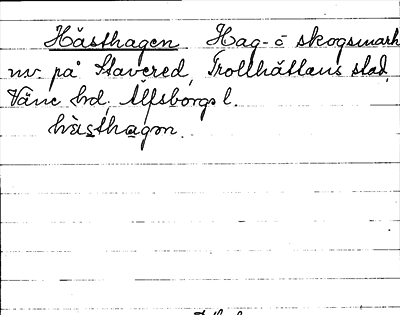 Hästhagen Hag- o skogsmark
nv. på Stavered, Trollhättans stad,
Väne hd, Älfsborgs l.
hästhagen.